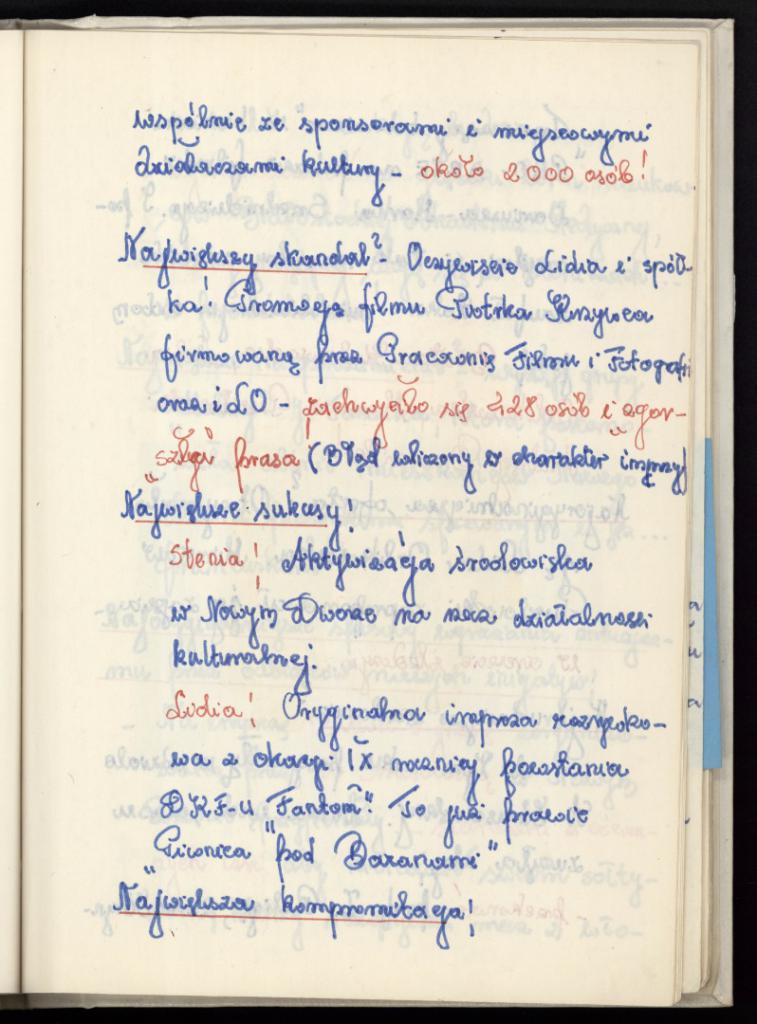 wspólnie ze sponsorami i miejscowymi
działaczami kultury - około 2000 osób!
Największy skandal? - Oczywiście Lidia i spół-
ka! Promocję filmu Piotrka Krzywca
firmowaną przez Pracownię Filmu i Fotografii
oraz i LO - zachwyciło się 428 osób i "zgor-
szyła" prasa! (Błąd wliczony w charakter imprezy)
Największe sukcesy!
Stenia! Aktywizacja środowiska
w Nowym Dworze na rzecz działalności
kulturalnej.
Lidia! Oryginalna impreza rozrywko-
wa z okazji IX rocznicy powstania
DKF-u "Fantom". To już prawie
"Piwnica pod Baranami"
Największa kompromitacja!